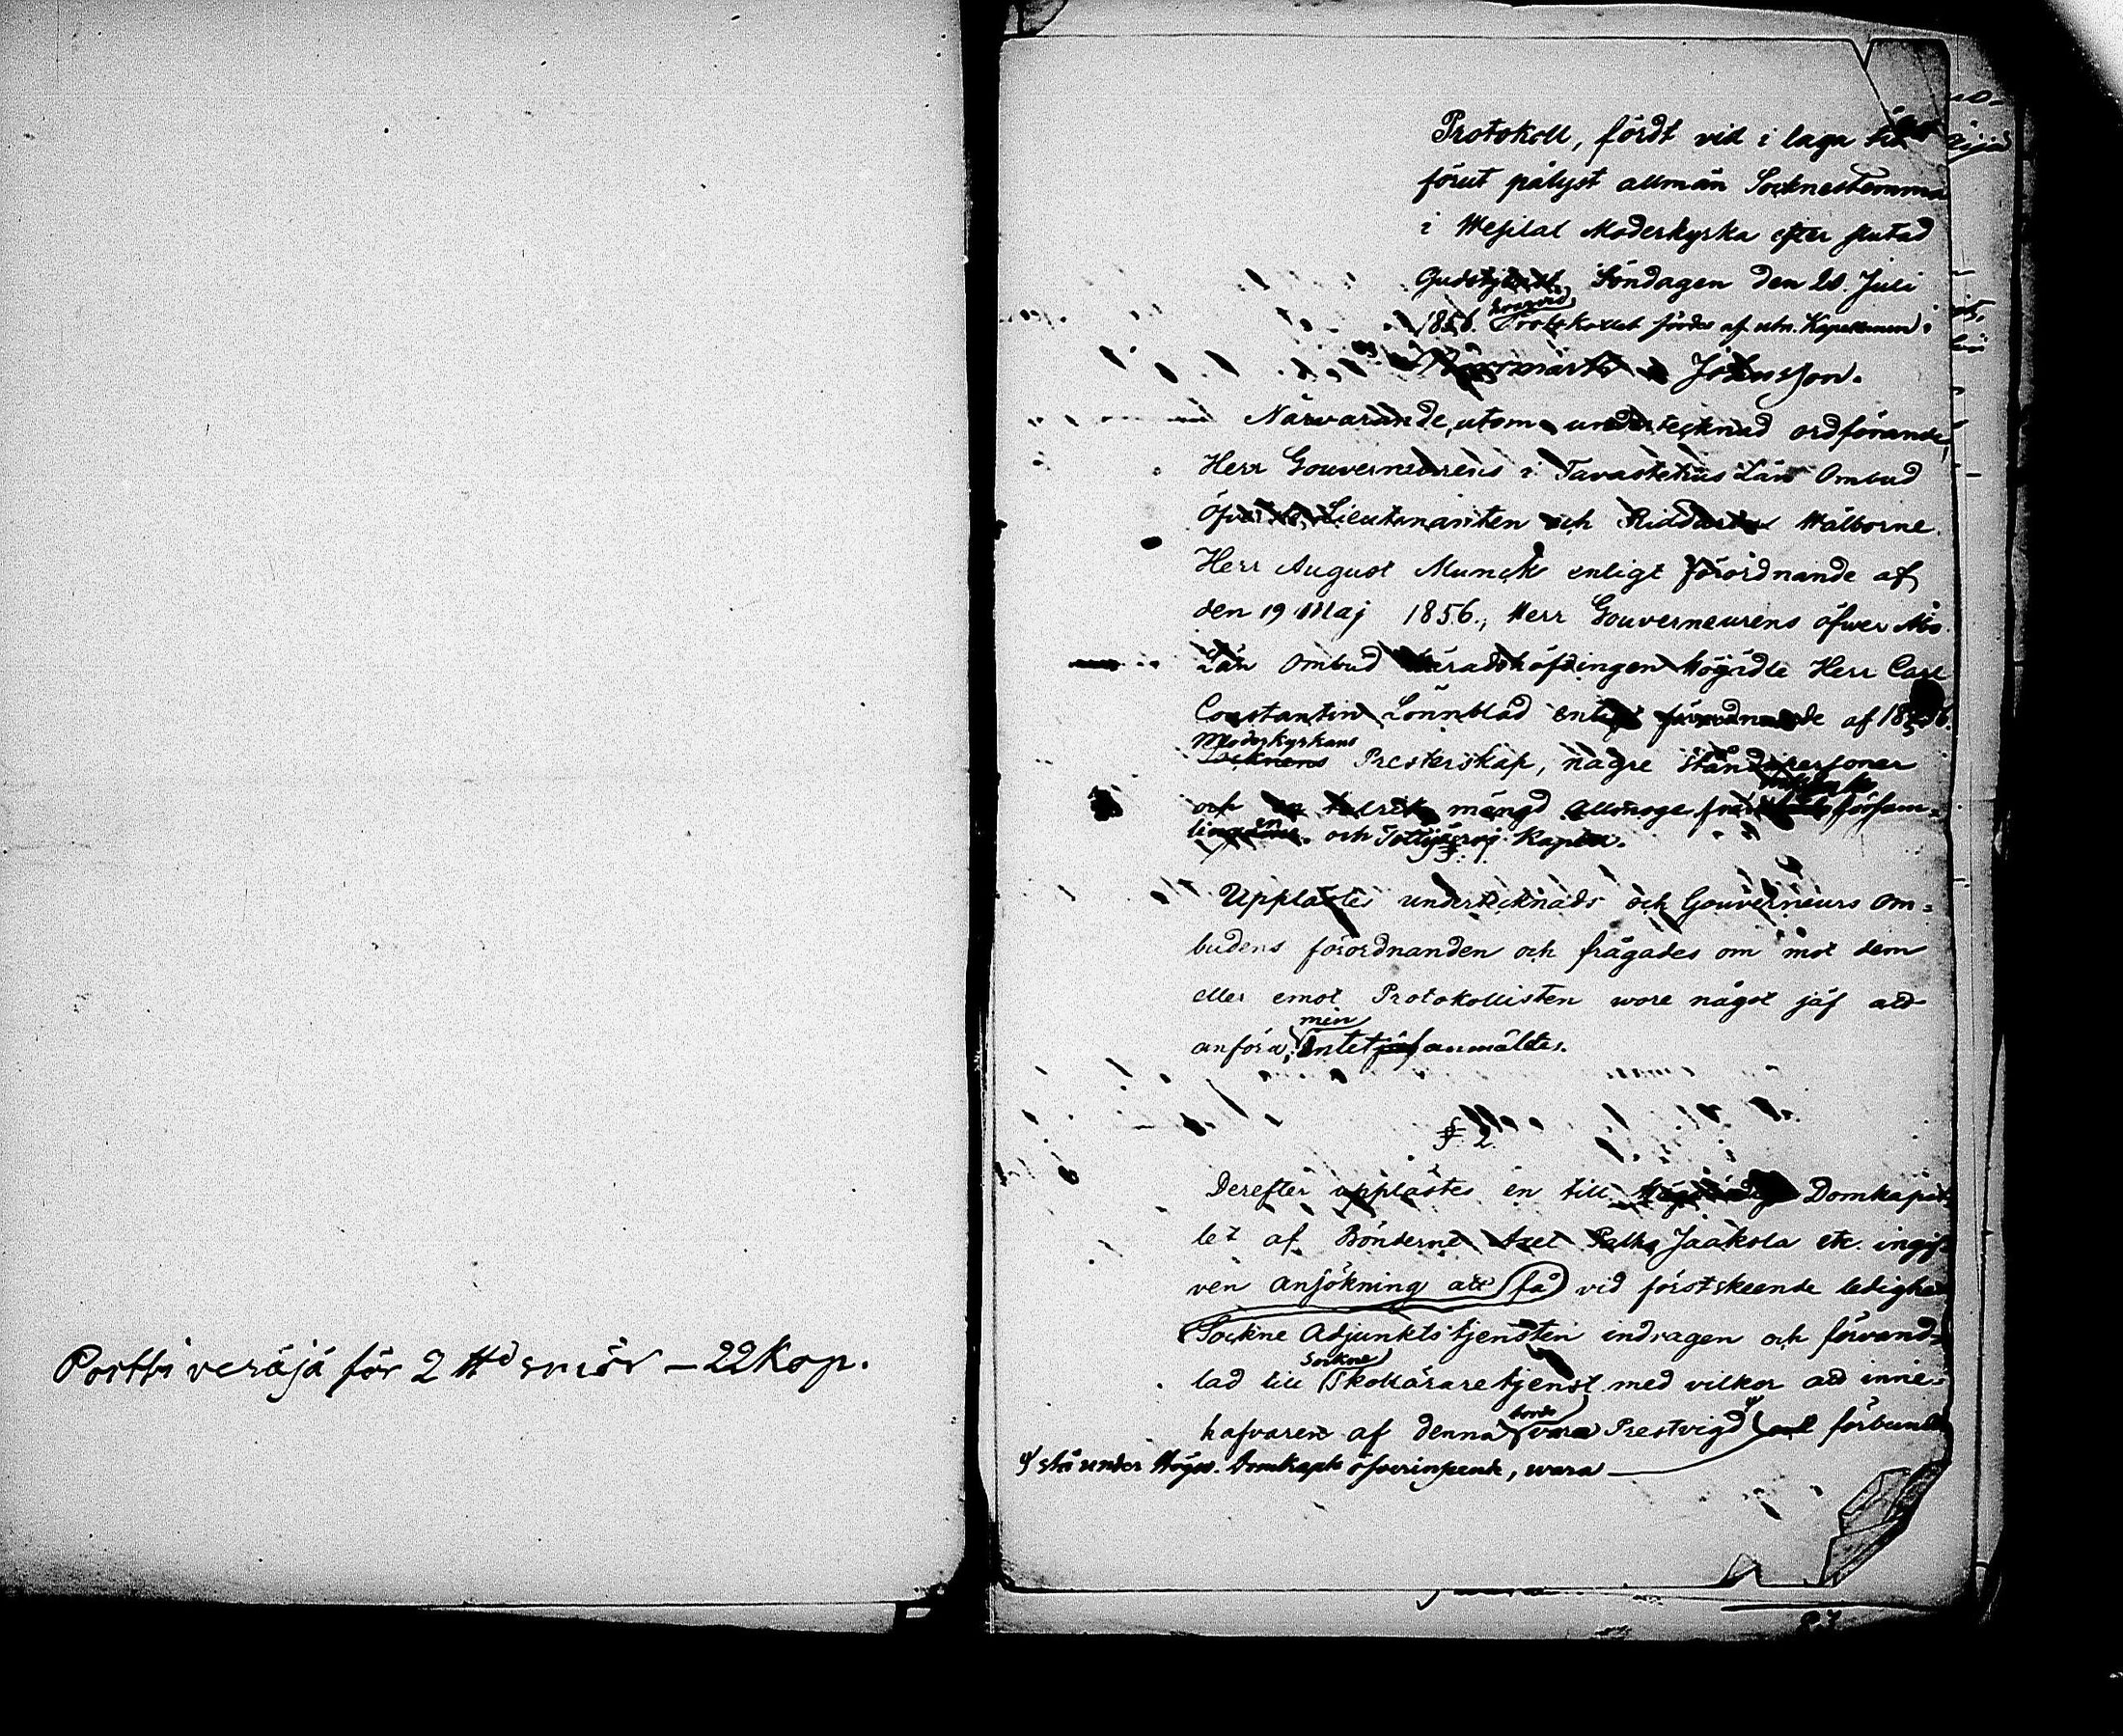 Portti veräjä för 2 ttd smör – 22 Kop.
Protokoll, fördt vid i laga tid
förut pålyst allmän Socknestemma
i Wesilax Moderkyrka efter slutad
Gudstjenst Söndagen den 20. Juli
1856. hvarvid Protokollet fördes af utn. Kapellanen
Johnsson.
Närvarande, utom undertecknad ordförande,
Herr Gouverneurens i Tavastehus Län Ombud
Öfverste Lieutenanten och Riddaren Wälborne
Herr August Munck enligt förordnande af
den 19 Maj 1856., Herr Gouverneurens öfwer Åbo
Län Ombud Häradshöfdingen Högädle Herr Carl
Constantin Lönnblad enligt förordnande af 1856.
Moderkyrkans
Socknens Presterskap, någre Ståndspersoner
och en talrik mängd Allmoge från församlingen
och Tottijärvj Kapell.
Upplästes undertecknads och Gouverneurs Om-
budens förordnanden och frågades om mot dem
eller emot Protokollisten wore något jäf att
anföra; men intet jäf anmältes.
§ 2
Derefter upplästes en till Domkapit-
let af Bönderne Axel Palho Jaakola etc. ingif-
ven ansökning att få vid förstskeende ledighet
Sockne Adjunkts tjensten indragen och förvand-
lad till Sockne Skollärare tjenst med vilkor att inne-
hafvaren af denna borde vara Prestvigd och förbunden
stå under Högw. Domkapts öfverinseende, wara